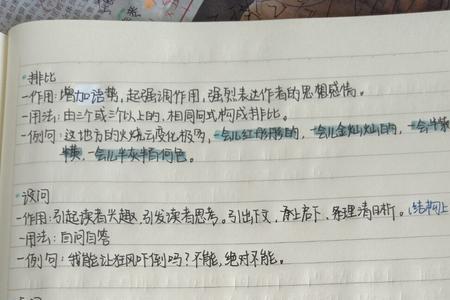 排比
一作用:增加语势,起强调作用,强烈表达作者的思想感情。
一用法:由三个或三个以上的,相同句式构成排比。
一例句:这地方的火烧云变化极多,一会儿红彤彤的,一会儿金灿灿的,一会半紫
半黄,一会儿半灰半百合色。
设问
一作用:引起读者兴趣,引发读者思考。引出下文,承上启下,条理清晰。(结构上
一用法:自问自答
一例句:我能让狂风吓倒吗?不能,绝对不能。